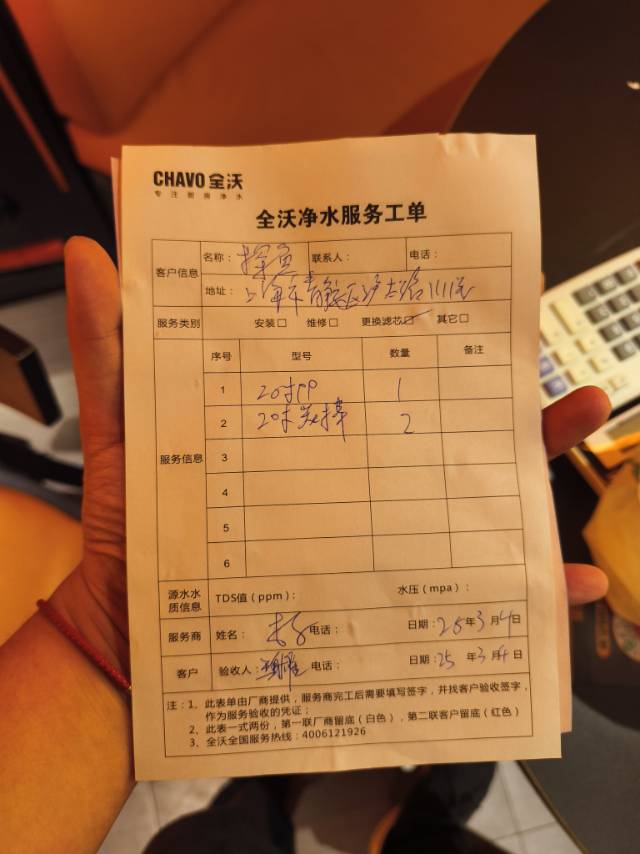 CHAVO 全沃
专注厨房净水
全沃净水服务工单
客户信息
名称：探鱼 联系人： 电话：
地址：上海市静安区沪太路1111号
服务类别 安装□ 维修□ 更换滤芯☑ 其它□
服务信息
序号 型号 数量 备注
1 20寸PP 1
2 20寸炭棒 2
3
4
5
6
源水水质信息 TDS值（ppm）： 水压（mpa）：
服务商 姓名： 电话： 日期：25年3月4日
客户 验收人： 电话： 日期：25年3月4日
注：1、此表单由厂商提供，服务商完工后需要填写签字，并找客户验收签字，
作为服务验收的凭证；
2、此表一式两份，第一联厂商留底（白色），第二联客户留底（红色）
3、全沃全国服务热线：4006121926